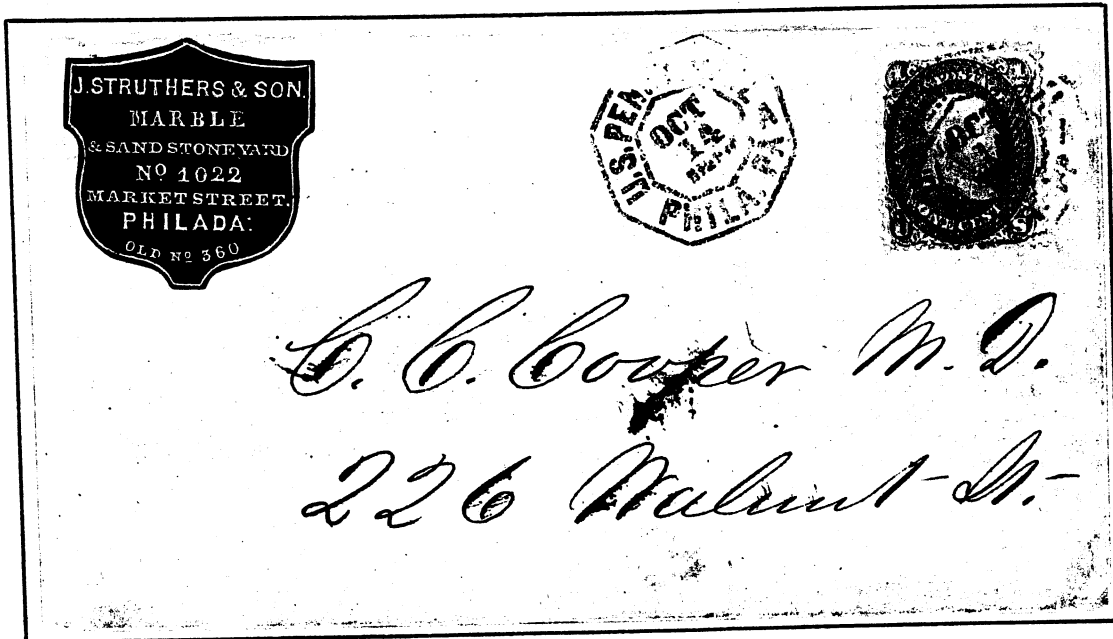 J. STRUTHERS & SON,
MARBLE
& SAND STONE YARD
No 1022
MARKET STREET,
PHILADA:
OLD No 360
U.S. PEN
PHILA. PA
OCT
14
OCT
ONE CENT
U S
C. C. Cooper M. D.
226 Walnut St.